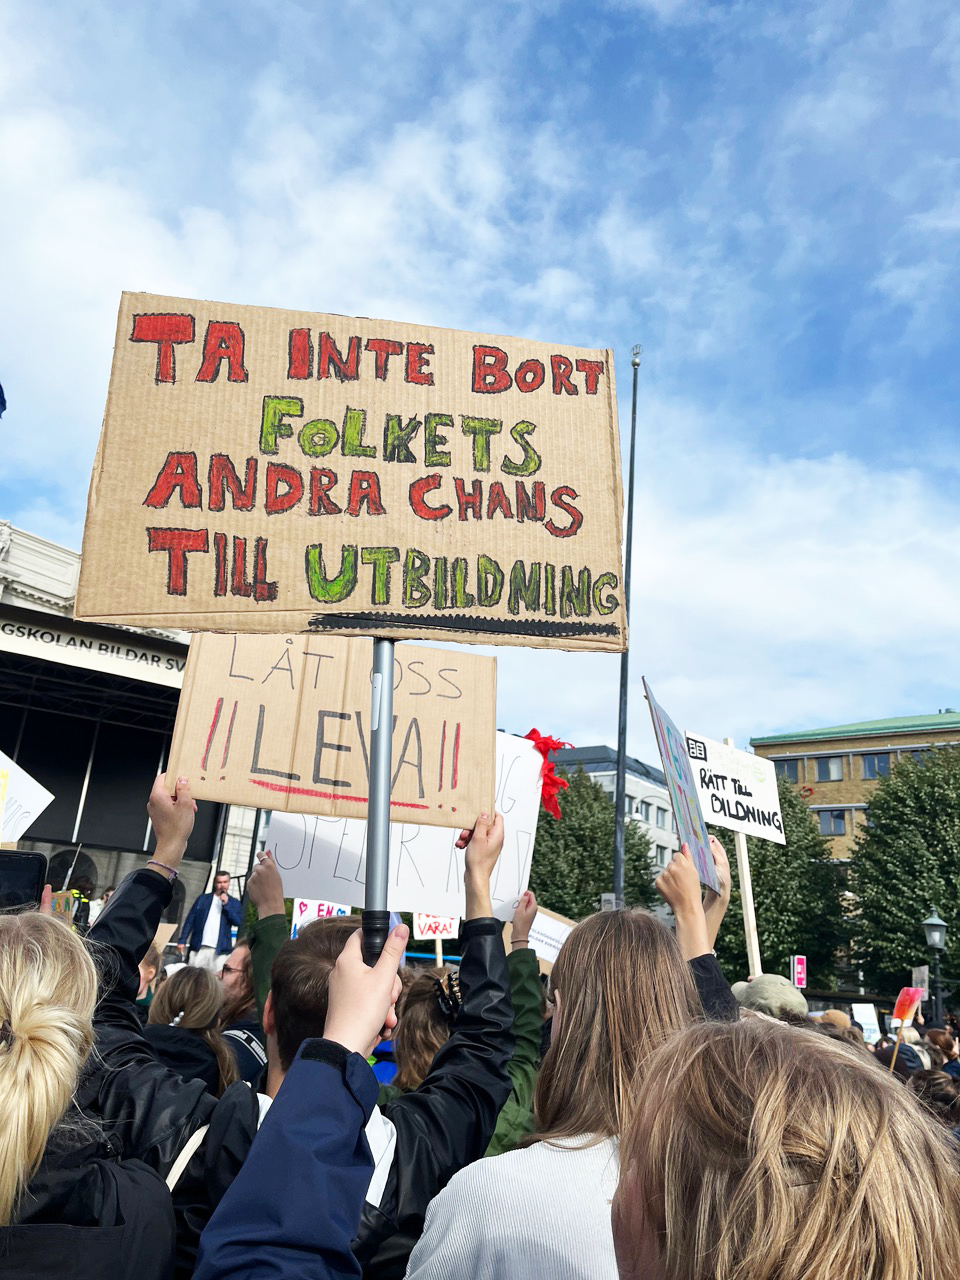 TA INTE BORT
FOLKETS
ANDRA CHANS
TILL UTBILDNING
GSKOLAN BILDAR SV
LÅT OSS
!!LEVA!!
RÄTT TILL
BILDNING
SPELAR
EN
VARA!